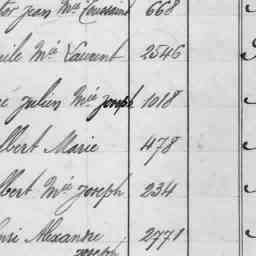 Jean Mie Toussaint 668
Mie Laurent 2546
Julien Mie Joseph 1018
lbert Marie 478
lbert Mie Joseph 234
Alexandre 2771
Joseph